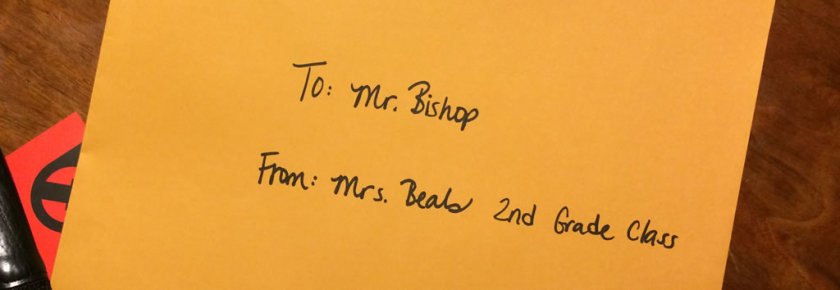 To: Mr. Bishop
From: Mrs. Beals 2nd Grade Class